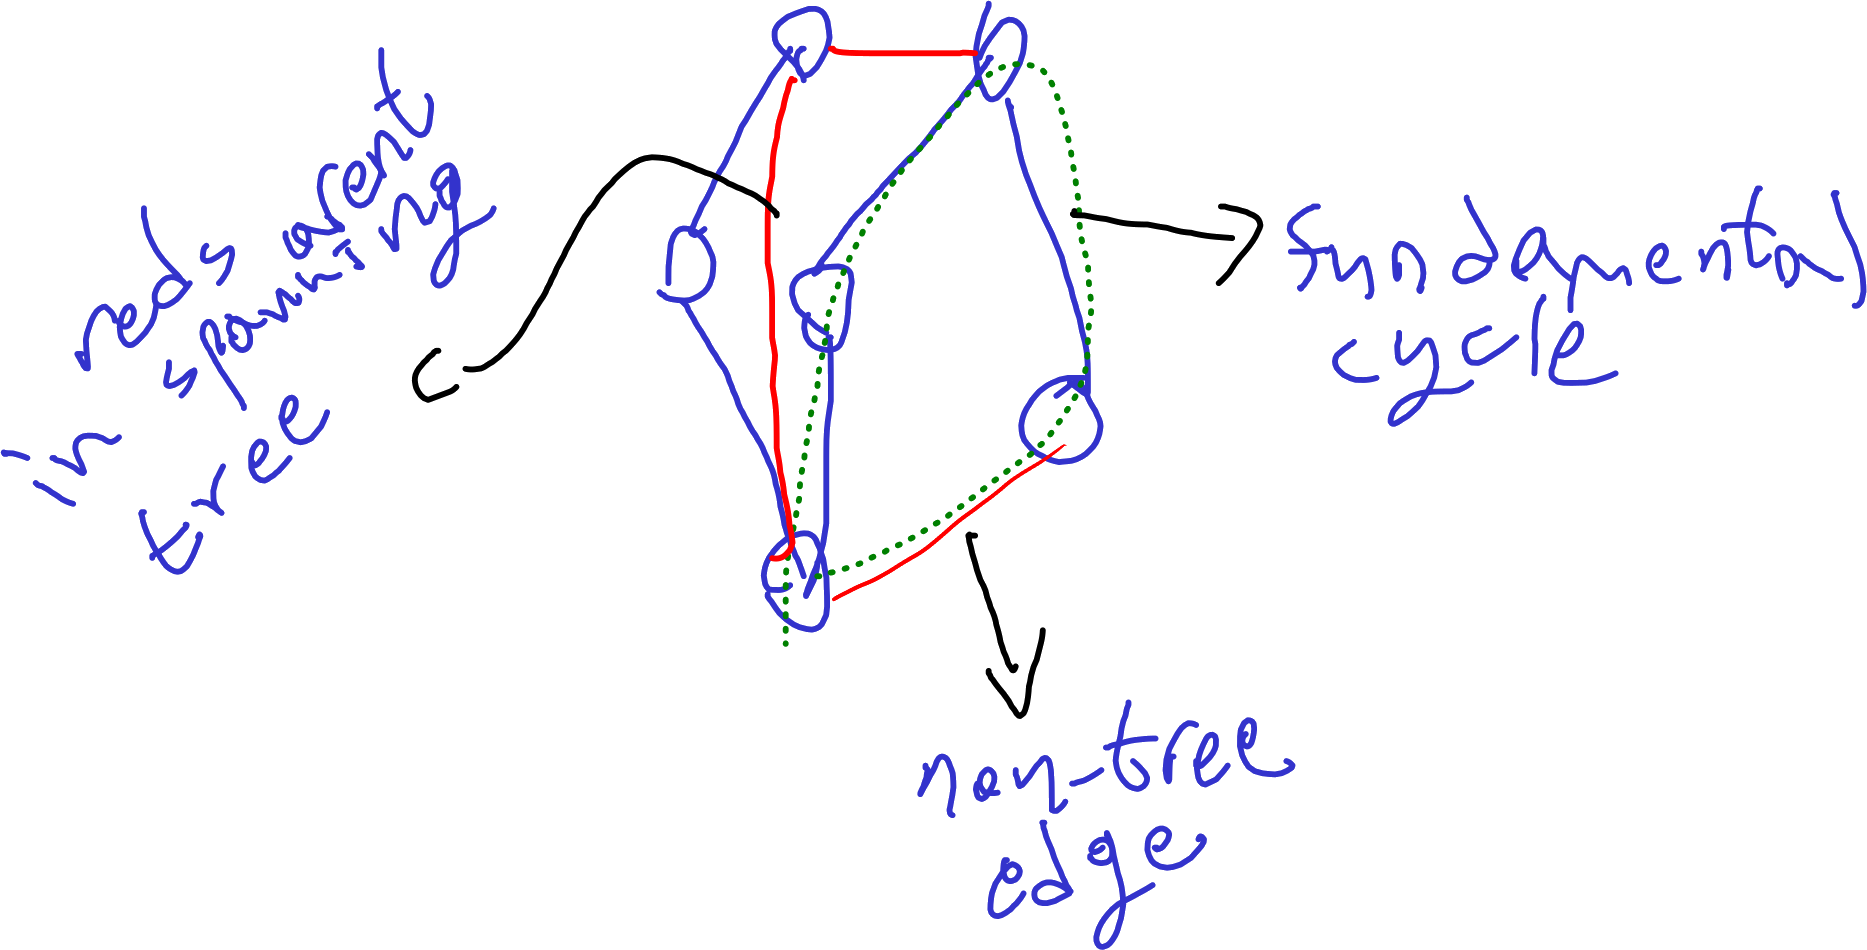 reds arent
in spanning
tree
c
fundamental
cycle
non-tree
edge